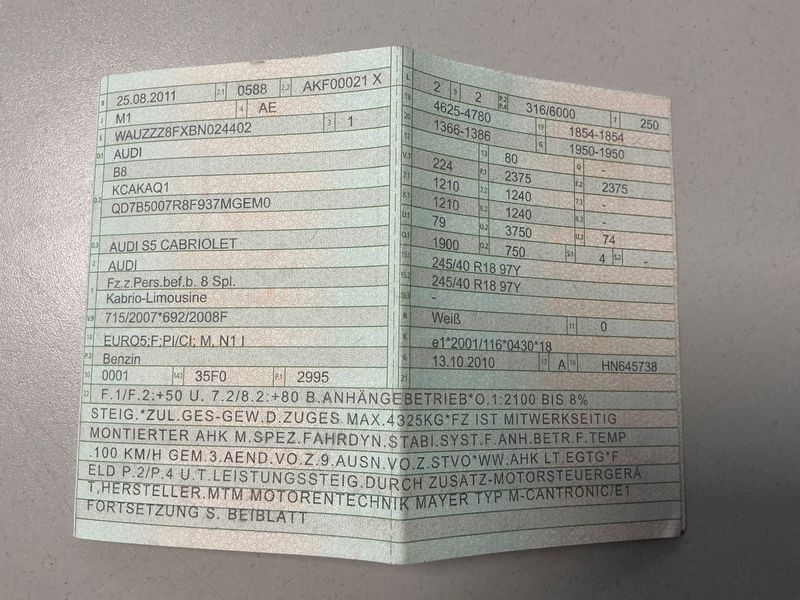 B 25.08.2011 2.1 0588 2.2 AKF00021 X
J M1 4 AE
E WAUZZZ8FXBN024402 3 1
D.1 AUDI
B8
D.2 KCAKAQ1
QD7B5007R8F937MGEM0
D.3 AUDI S5 CABRIOLET
2 AUDI
5 Fz.z.Pers.bef.b. 8 Spl.
Kabrio-Limousine
V.9 715/2007*692/2008F
14 EURO5;F;PI/CI; M, N1 I
P.3 Benzin
10 0001 14.1 35F0 P.1 2995
L 2 9 2 P.2 P.4 316/6000 T 250
18 4625-4780 19 1854-1854
20 1366-1386 G 1950-1950
12 - 13 80 Q -
V.7 224 F.1 2375 F.2 2375
7.1 1210 7.2 1240 7.3 -
8.1 1210 8.2 1240 8.3 -
U.1 79 U.2 3750 U.3 74
O.1 1900 O.2 750 S.1 4 S.2 -
15.1 245/40 R18 97Y
15.2 245/40 R18 97Y
15.3 -
R Weiß 11 0
K e1*2001/116*0430*18
6 13.10.2010 17 A 16 HN645738
21
22 F.1/F.2:+50 U. 7.2/8.2:+80 B.ANHÄNGEBETRIEB*O.1:2100 BIS 8%
STEIG.*ZUL.GES-GEW.D.ZUGES MAX.4325KG*FZ IST MITWERKSEITIG
MONTIERTER AHK M.SPEZ.FAHRDYN.STABI.SYST.F.ANH.BETR.F.TEMP
.100 KM/H GEM.3.AEND.VO.Z.9.AUSN.VO.Z.STVO*WW.AHK LT.EGTG*F
ELD P.2/P.4 U.T.LEISTUNGSSTEIG.DURCH ZUSATZ-MOTORSTEUERGERÄ
T,HERSTELLER.MTM MOTORENTECHNIK MAYER TYP M-CANTRONIC/E1
FORTSETZUNG S. BEIBLATT